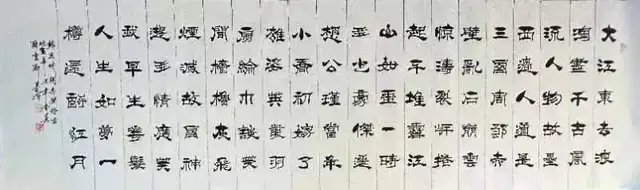 大江東去浪
淘盡千古風
流人物故壘
西邊人道是
三國周郎赤
壁亂石崩雲
驚濤裂岸捲
起千堆雪江
山如畫一時
多少豪傑遙
想公瑾當年
小喬初嫁了
雄姿英發羽
扇綸巾談笑
間檣櫓灰飛
煙滅故國神
遊多情應笑
我早生華髮
人生如夢一
樽還酹江月